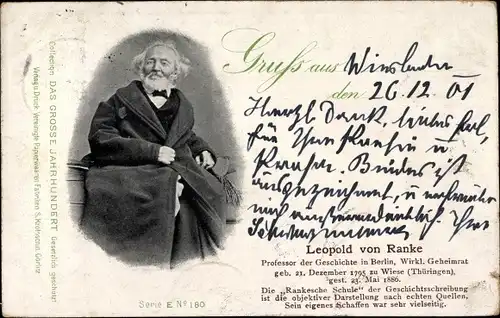 Collection DAS GROSSE JAHRHUNDERT Gesetzlich geschützt
Verlag u. Druck Vereinigte Papierwaaren-Fabriken S. Krotoschin, Görlitz
Gruss aus Wiesbaden
den 26.12.01
Herzl. Dank, liebes
für
Beides ist
ausgezeichnet, u.
mich außerordentlich. Ihre
Leopold von Ranke
Professor der Geschichte in Berlin, Wirkl. Geheimrat
geb. 21. Dezember 1795 zu Wiese (Thüringen),
gest. 23. Mai 1886.
Die „Rankesche Schule" der Geschichtsschreibung
ist die objektiver Darstellung nach echten Quellen.
Sein eigenes Schaffen war sehr vielseitig.
Serie E No 160